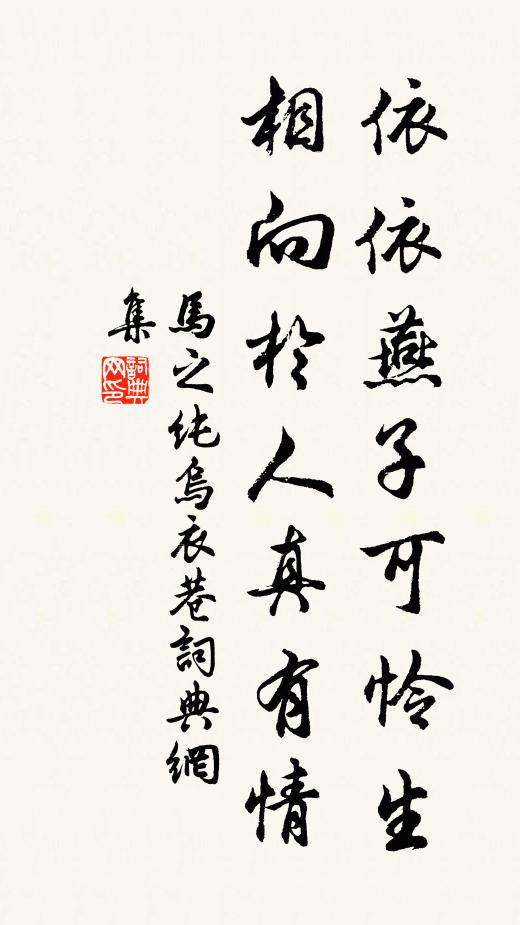 依依燕子可怜生
相向於人真有情
馬之純烏衣巷詞典網
集
詞典网印